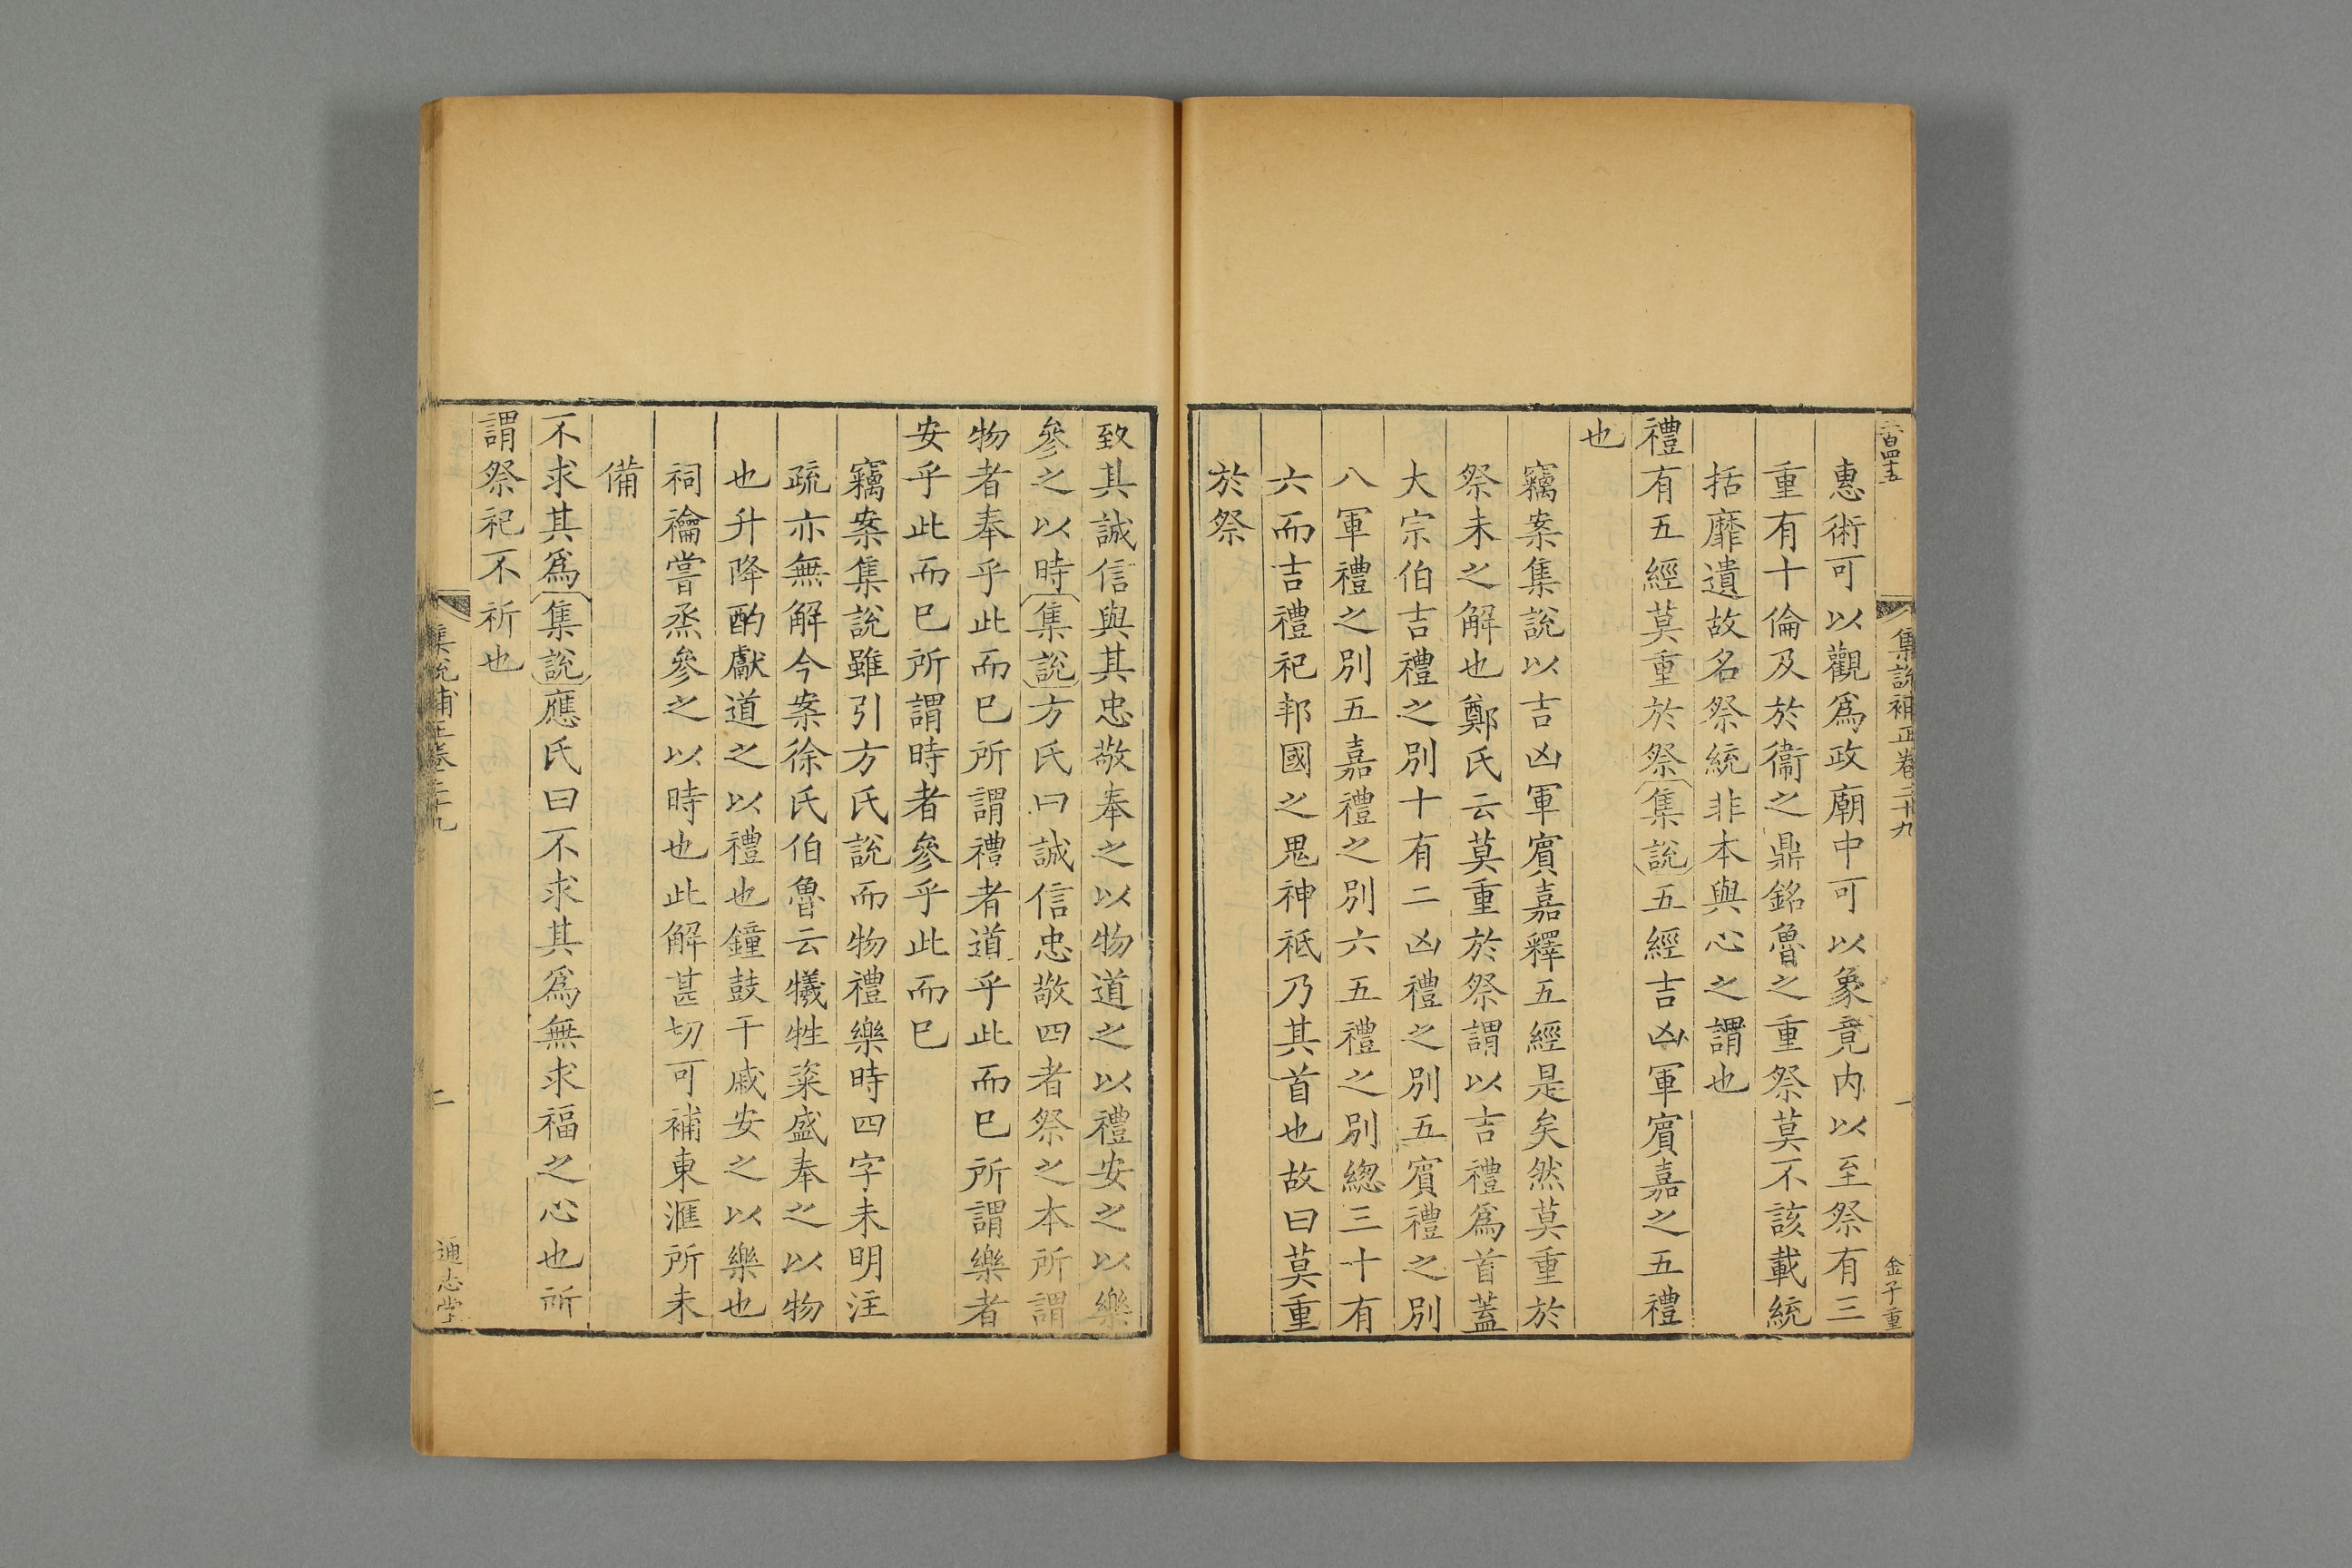 集說補正卷二十九
一
金子重
惠術可以觀為政廟中可以象竟内以至祭有三
重有十倫及於衞之鼎銘魯之重祭莫不該載統
括靡遺故名祭統非本與心之謂也
禮有五經莫重於祭集說五經吉凶軍賓嘉之五禮
也
竊案集說以吉凶軍賓嘉釋五經是矣然莫重於
祭未之解也鄭氏云莫重於祭謂以吉禮爲首蓋
大宗伯吉禮之別十有二凶禮之別五賓禮之別
八軍禮之別五嘉禮之別六五禮之別總三十有
六而吉禮祀邦國之鬼神祗乃其首也故曰莫重
於祭
致其誠信與其忠敬奉之以物道之以禮安之以樂
參之以時集說方氏曰誠信忠敬四者祭之本所謂
物者奉乎此而已所謂禮者道乎此而已所謂樂者
安乎此而已所謂時者參乎此而已
竊案集說雖引方氏說而物禮樂時四字未明注
疏亦無解今案徐氏伯魯云犧牲粢盛奉之以物
也升降酌獻道之以禮也鐘鼓干戚安之以樂也
祠禴嘗烝參之以時也此解甚切可補東滙所未
備
不求其爲集說應氏曰不求其爲無求福之心也所
謂祭祀不祈也
集說補正卷二十九
二
通志堂